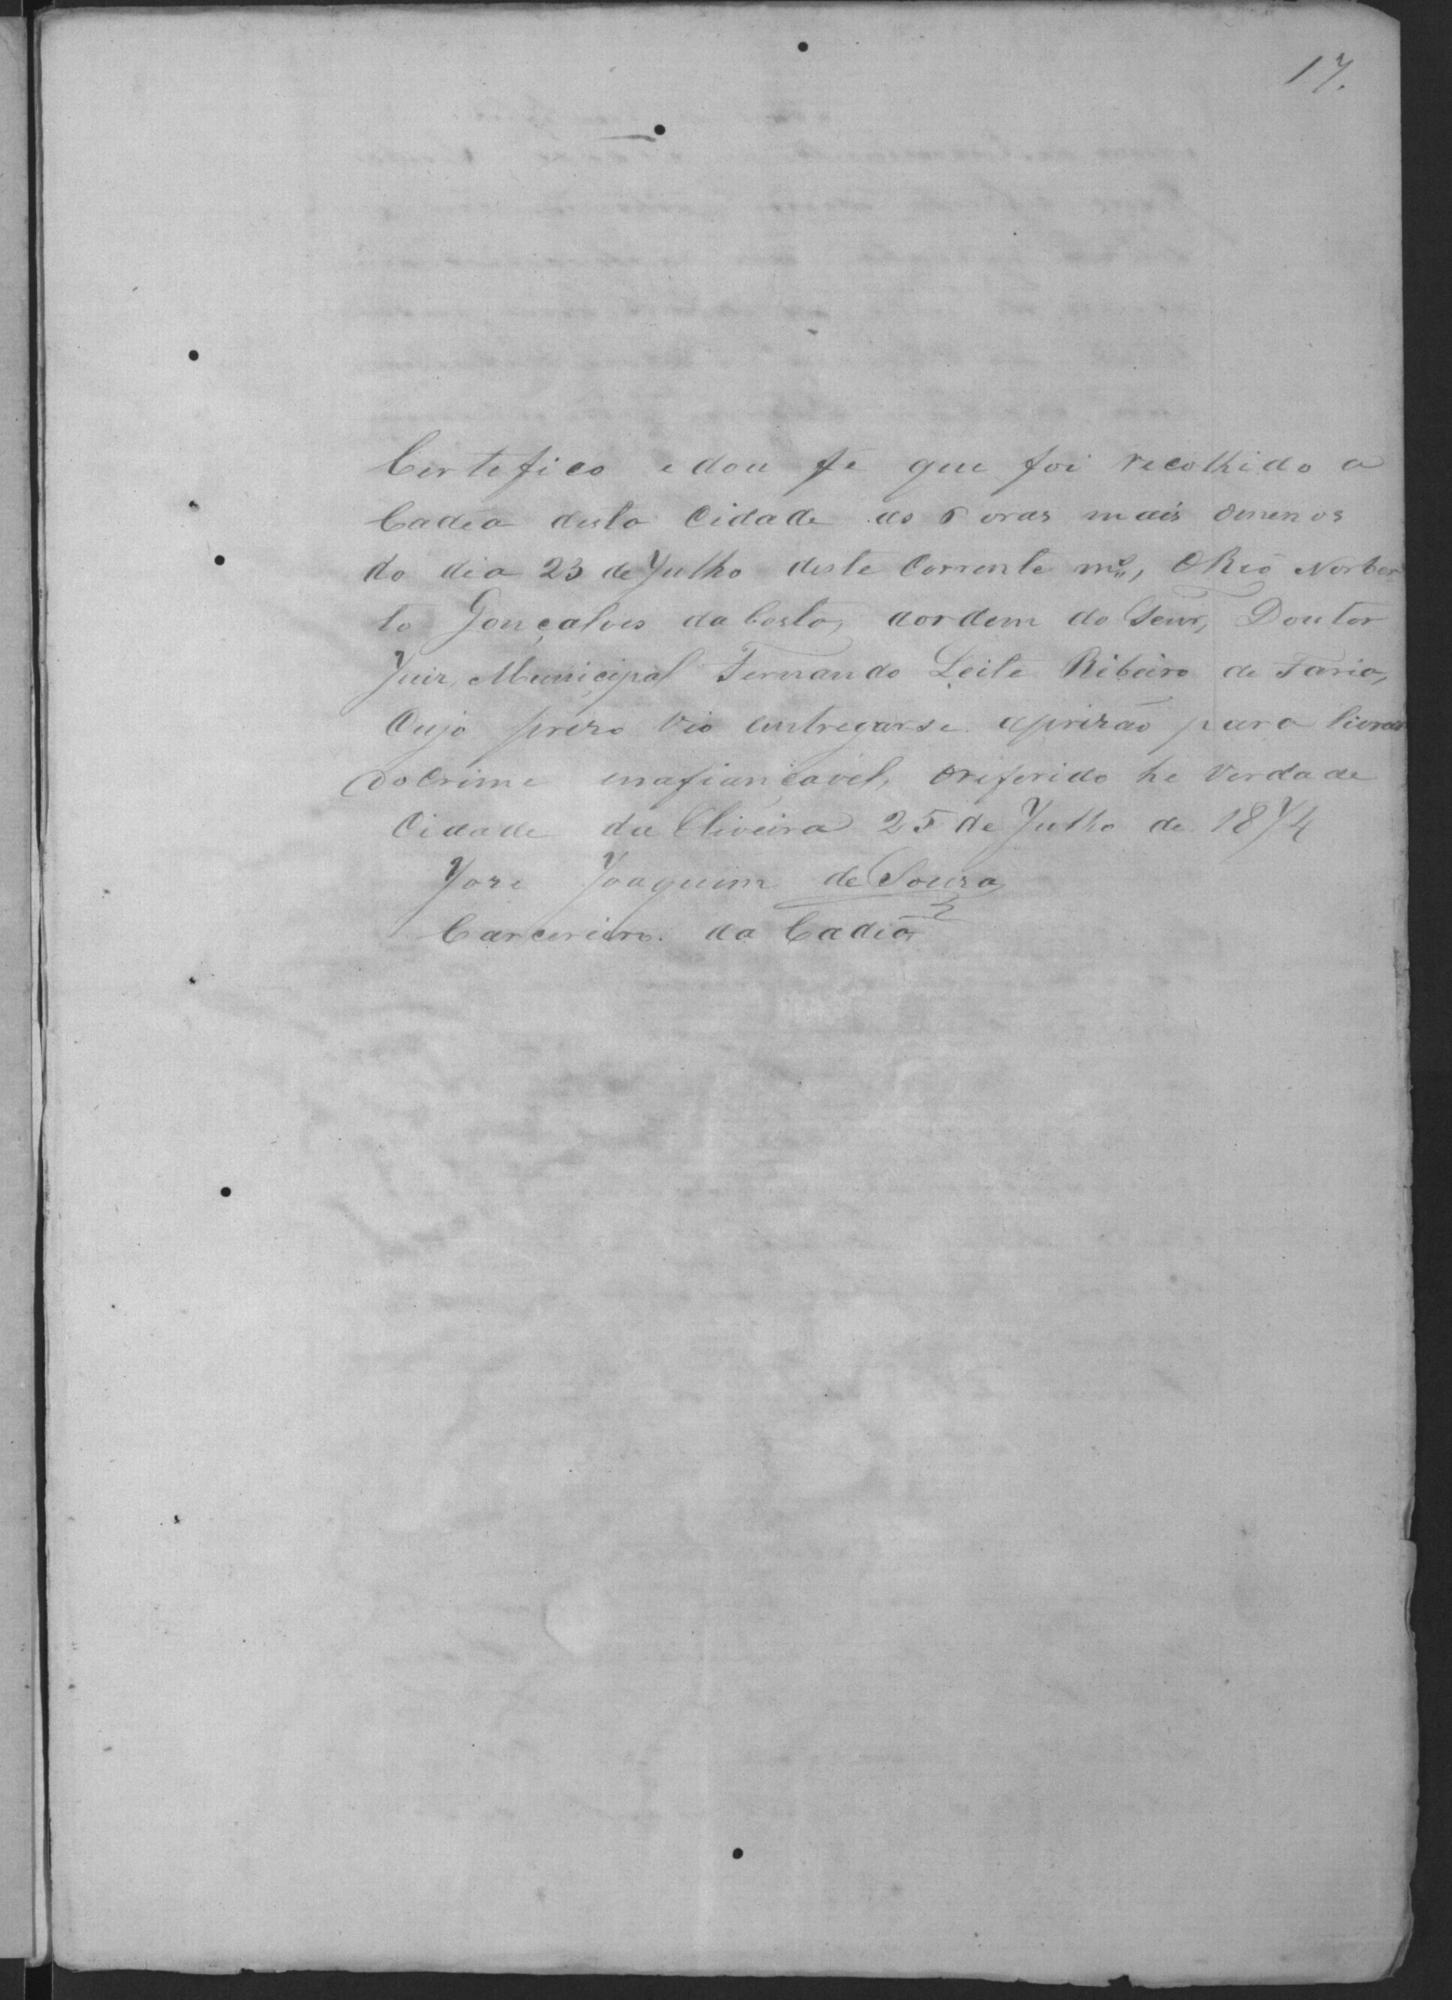 17.
Certefico edou fé que foi recolhido a
Cadea desta Cidade as 6 oras mais omenos
do dia 23 de Julho deste Corrente mes, ORéo Norber
to Gonçalves da Costa, aordem do Senr, Doutor
Juiz Municipal Fernando Leite Ribeiro de Faria,
Cujo prezo vio entregarse aprizão para livrar
do Crime enafiançavel, oreferido he Verdade
Cidade da Oliveira 25 de Julho de 1874
Joze Joaquim de Souza
Carcereiro da Cadea